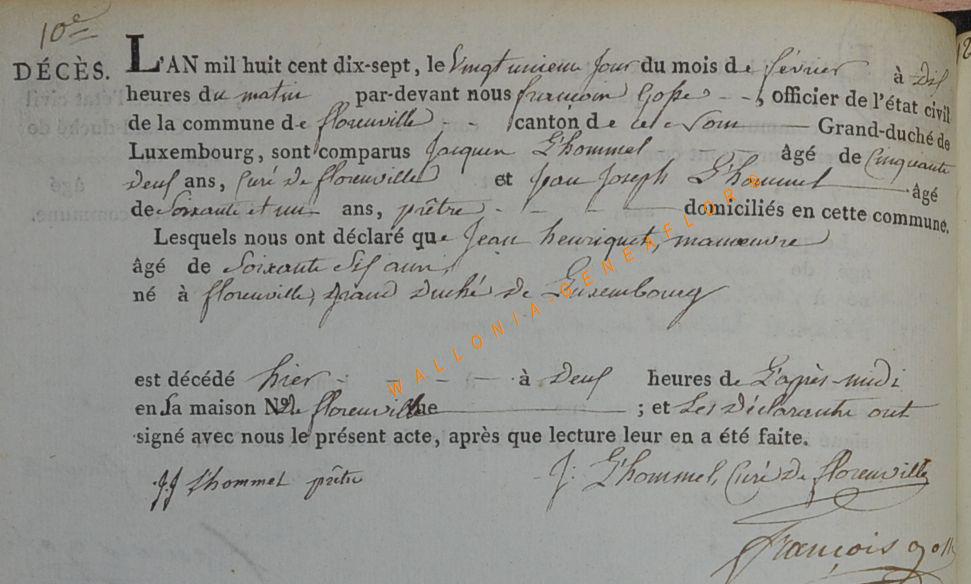 10e
DÉCÈS. L'AN mil huit cent dix-sept, le Vingt unieme jour du mois de février à dix
heures du matin par-devant nous françois Gosse - - , officier de l'état civil
de la commune de florenville - - canton de ce Nom Grand-duché de
Luxembourg, sont comparus Jacques L'hommel âgé de Cinquante
deux ans, Curé de florenville et Jean Joseph L'hommel âgé
de Soixante et un ans, prêtre - - - domiciliés en cette commune.
Lesquels nous ont déclaré que Jean henriquet, manœuvre
âgé de Soixante Six ans,
né à florenville, grand duché de Luxembourg
est décédé hier - - - - à deux heures de L'après-midi
en Sa maison No. de florenville rue ; et Les déclarants ont
signé avec nous le présent acte, après que lecture leur en a été faite.
J.J L'hommel prêtre J: L'hommel, Curé de florenville
François
WALLONIA-GENEAFLORE